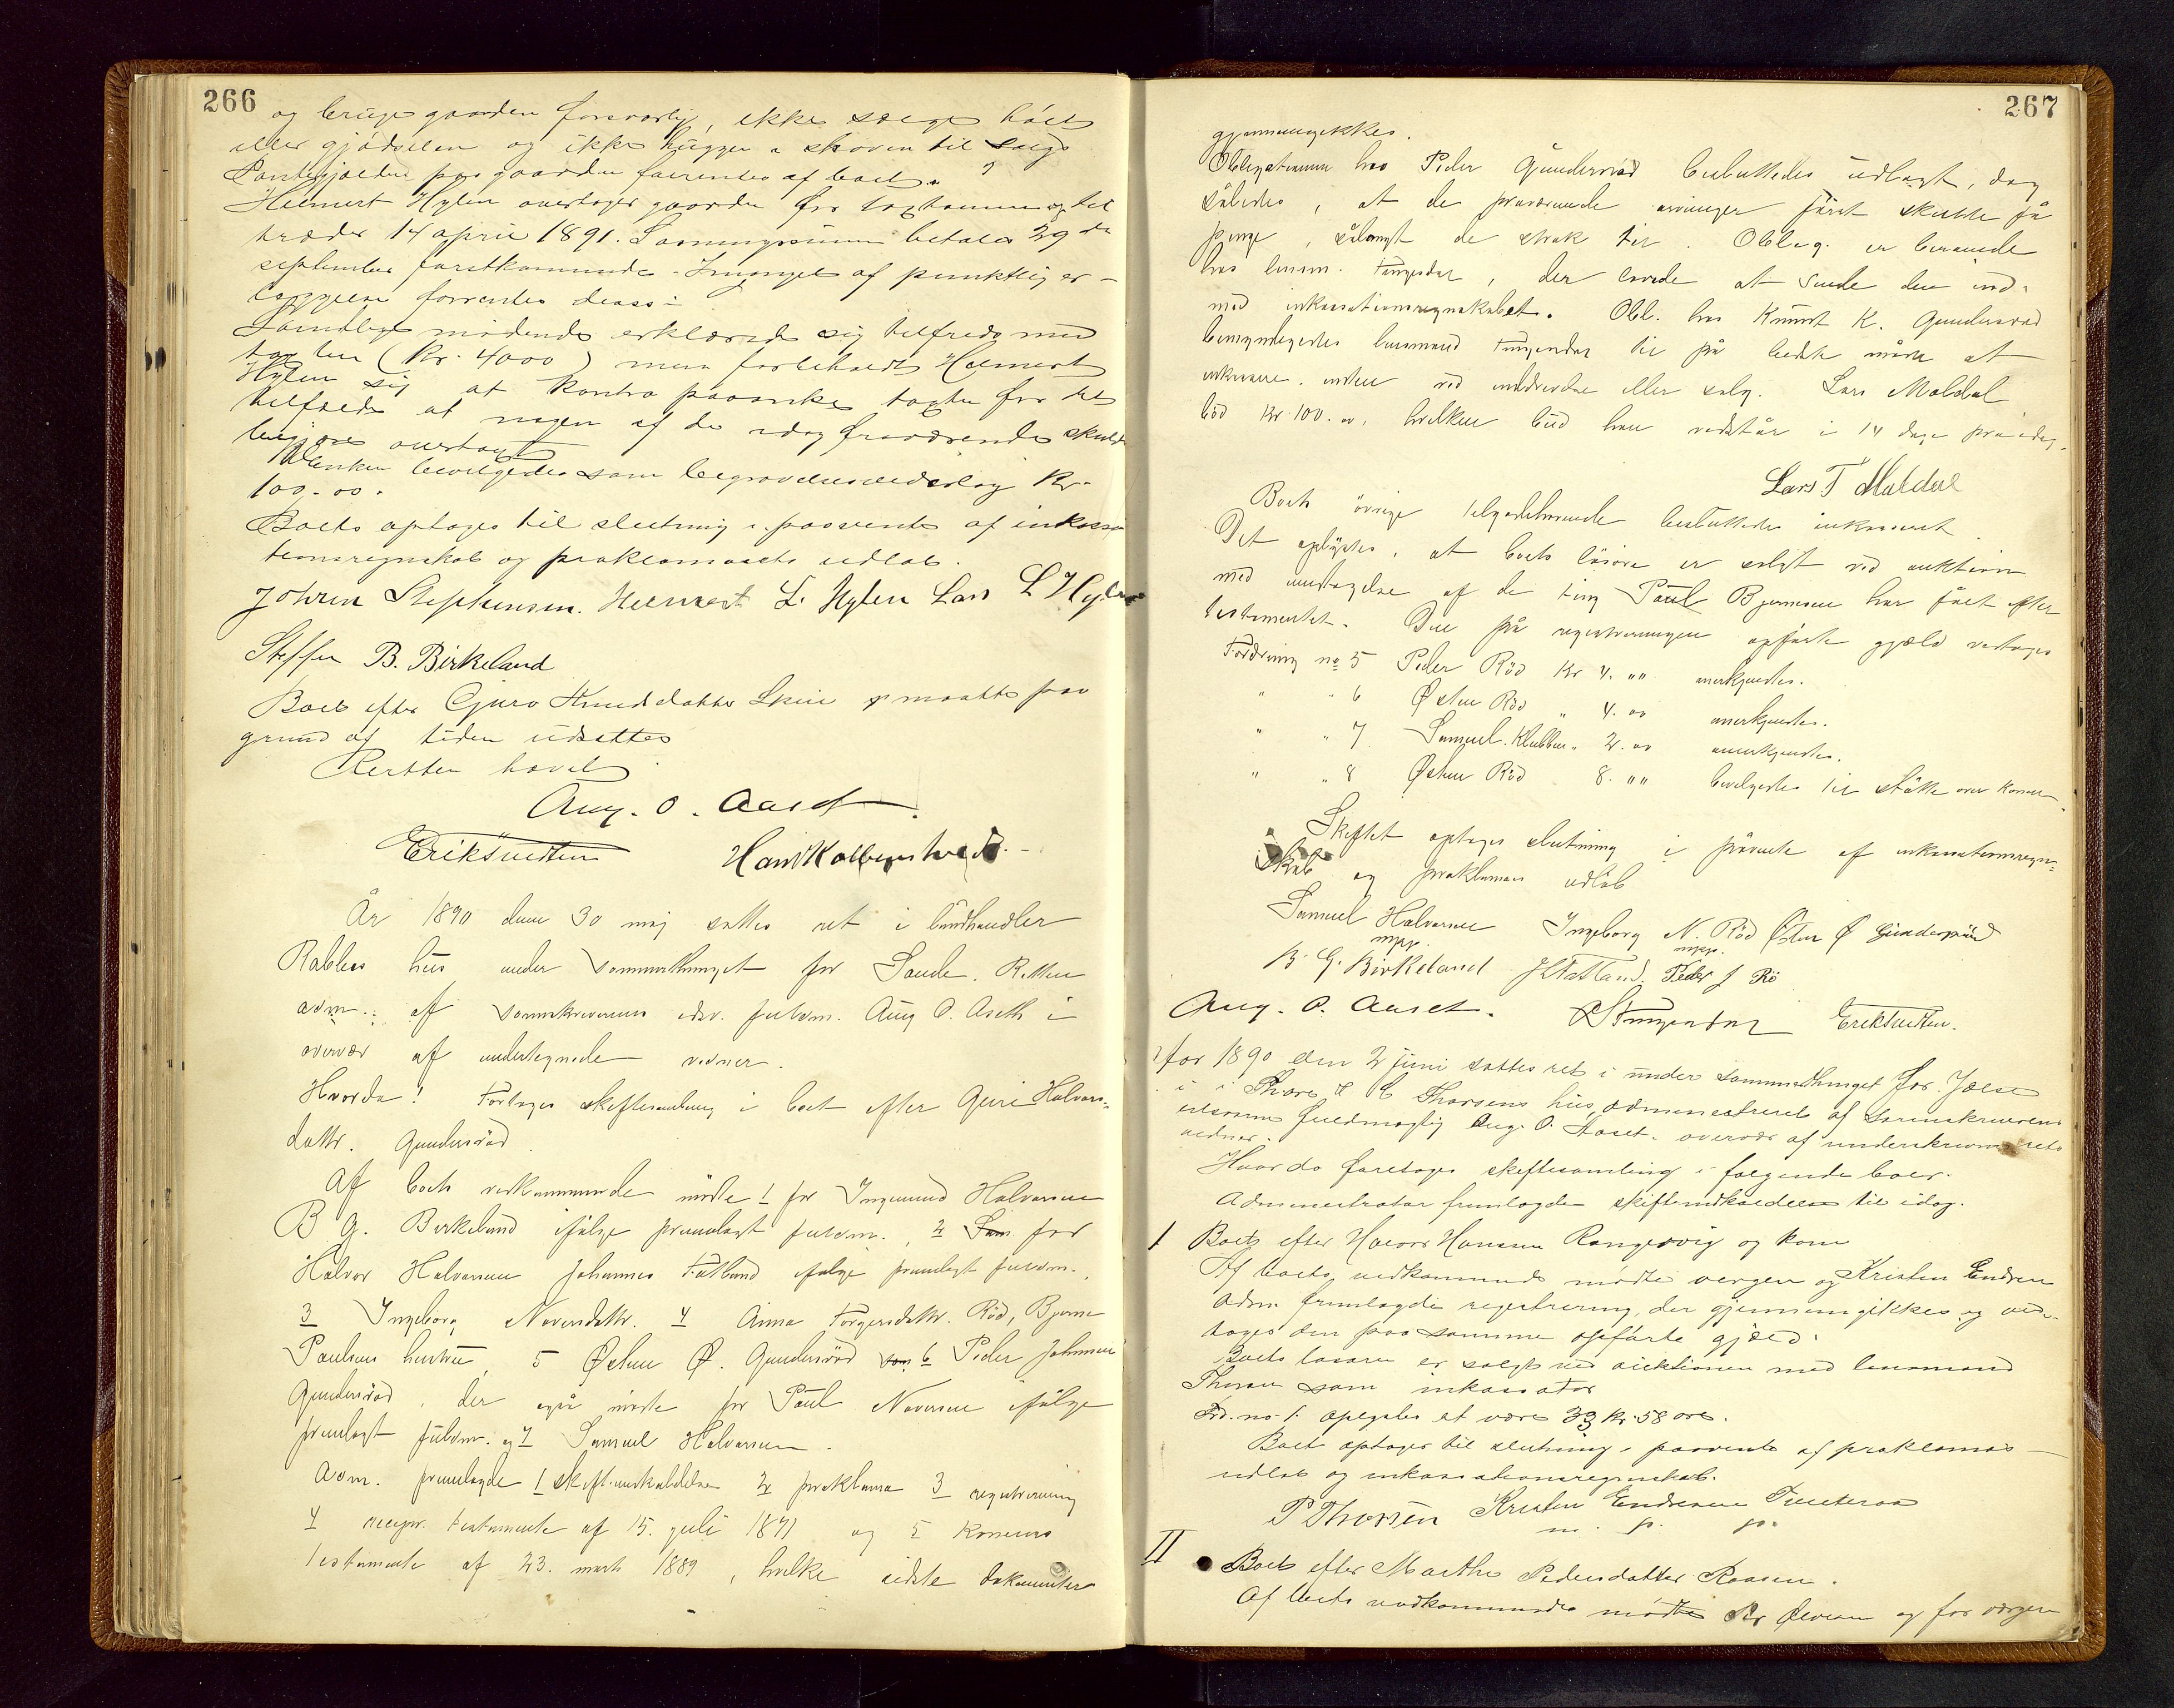 266
og bruge gaarden forsvarlig, ikke sælge höet
eller gjödselen og ikke hugge i skoven til salgs
Pantegjælden paa gaarden forrentes af boet.
Helmert Hylen overtager gaarden for taxtsummen og til
træder 14 april 1891. Løsningssummen betales 29de
september førstkommende. I mangel af punktlig er-
læggelse forrentes dens
Samtlige mødende erklærede sig tilfreds med
taxten (Kr. 4000) men forbeholdt Helmert
Hylen sig at kontra paaanke taxten for det
tilfælde at nogen af de idag fraværende skulde
begjære overtaxt
Enken bevilgedes som begravelsesvederlag Kr.
100.00.
Boets optages til slutning i paavente af inkassa
tionsregnskab og proklamaets udløb.
Johren Stephensen. Helmert L. Hylen Lars L Hylen
Steffen B. Birkeland
Boet efter Guro Knudsdatter Skeie maatte paa
grund af tiden udsættes
Retten hævet
Aug. O. Aaset.
Erik Tvedten Hans Kolbenstvedt.
År 1890 den 30 maj sattes ret i landhandler
Rabbes hus under sommerthinget for Sande. Retten
adm. af sorenskriverens edsv. fuldm. Aug O. Aseth i
overvær af undertegnede vidner.
Hvorda! Fortoges skiftesamling i boet efter Guri Halvors-
dattr. Gundersröd
Af boets vedkommende mødte 1 for Ingemund Halvorsen
B G. Birkeland ifølge fremlagt fuldm., 2 for
Halvor Halvorsen Johannes Fatland ifølge fremlagt fuldm.,
3 Ingeborg Neversdattr. 4 Anna Torgersdattr. Röd, Bjørn
Paulsens hustru, 5 Østen Ø. Gundersröd 6 Peder Johnsen
Gundersröd, der også mødte for Paul Neversen ifølge
fremlagt fuldm. og 7 Samuel Halvorsen.
Adm. fremlagde 1 skifteinkaldelse 2 proklama 3 registrering
4 testamente af 15. juli 1871 og 5
testamente af 23. marts 1889, hvilke sidste dokumenter
267
gjennemgikkes.
Obligationen hos Peder Gundersröd besluttedes udlagt, dog
således, at de fraværende arvinger først skulde få
penge, sålangt de strak til. Oblig. er beroende
hos lensm. Tungesdal, der lovede at sende den ind
med inkassationsregnskabet. Obl. hos Knut K. Gundersröd
bemyndigedes lensmand Tungesdal til på bedste måde at
inkassere enten ved inddrivelse eller salg. Lars Maldal
böd Kr 100.00, hvilket bud han vedstår i 14 dage fra idag.
Lars T Maldal
Boets övrige tilgodehavende besluttedes inkasseret.
Det oplystes, at boets lösöre er solgt ved auktion
med undtagelse af de ting Paul Bjørnsen har fået efter
testamentet. Den på registreringen opførte gjæld vedtoges
Fordring no 5 Peder Röd Kr 4.00 anerkjendtes.
" " 6 Østen Röd " 4.00 anerkjendtes.
" " 7 Samuel Klubben " 2.00 anerkjendtes.
" " 8 Østen Röd 8.00 bevilgedes til stötte over konen.
Skiftet optages slutning i påvente af inkassationsregn-
skab og proklamas udløb
Samuel Halvorsen Ingeborg N. Röd Østen Ø Gundersröd
mpp. mpp.
B. G. Birkeland J Fatland Peder J Rö
Aug. O. Aaset. Tungesdal Erik Tvedten.
Aar 1890 den 2 juni sattes ret i under sommerthinget for Jælse
i Thore C Thorsens hus, administreret af sorenskriverens
edsvorne fuldmægtig Aug. O. Aaset. overvær af underskrevne rets
vidner.
Hvorda foretoges skiftesamling i følgende boer.
Administrator fremlagde skifteindkaldelse til idag.
1 Boet efter Halvor Hansen Rangesvig og kone
Af boets vedkommende mødte vergen og Kristen Endresen
Adm. fremlagde registrering, der gjennemgikkes og ved-
toges den paa samme opførte gjæld.
Boets løsøre er solgt ved auktionen med lensmand
Thorsen som inkassator
Fd. no 1. opgives at være 33 kr. 58 øre.
Boet optages til slutning i paavente af proklamas
udløb og inkassationsregnskab.
P Thorsen Kristen Endresen Tveteraas
m. p. p.
II Boet efter Marthe Pedersdatter Raasen.
Af boets vedkommende mødte og for vergen